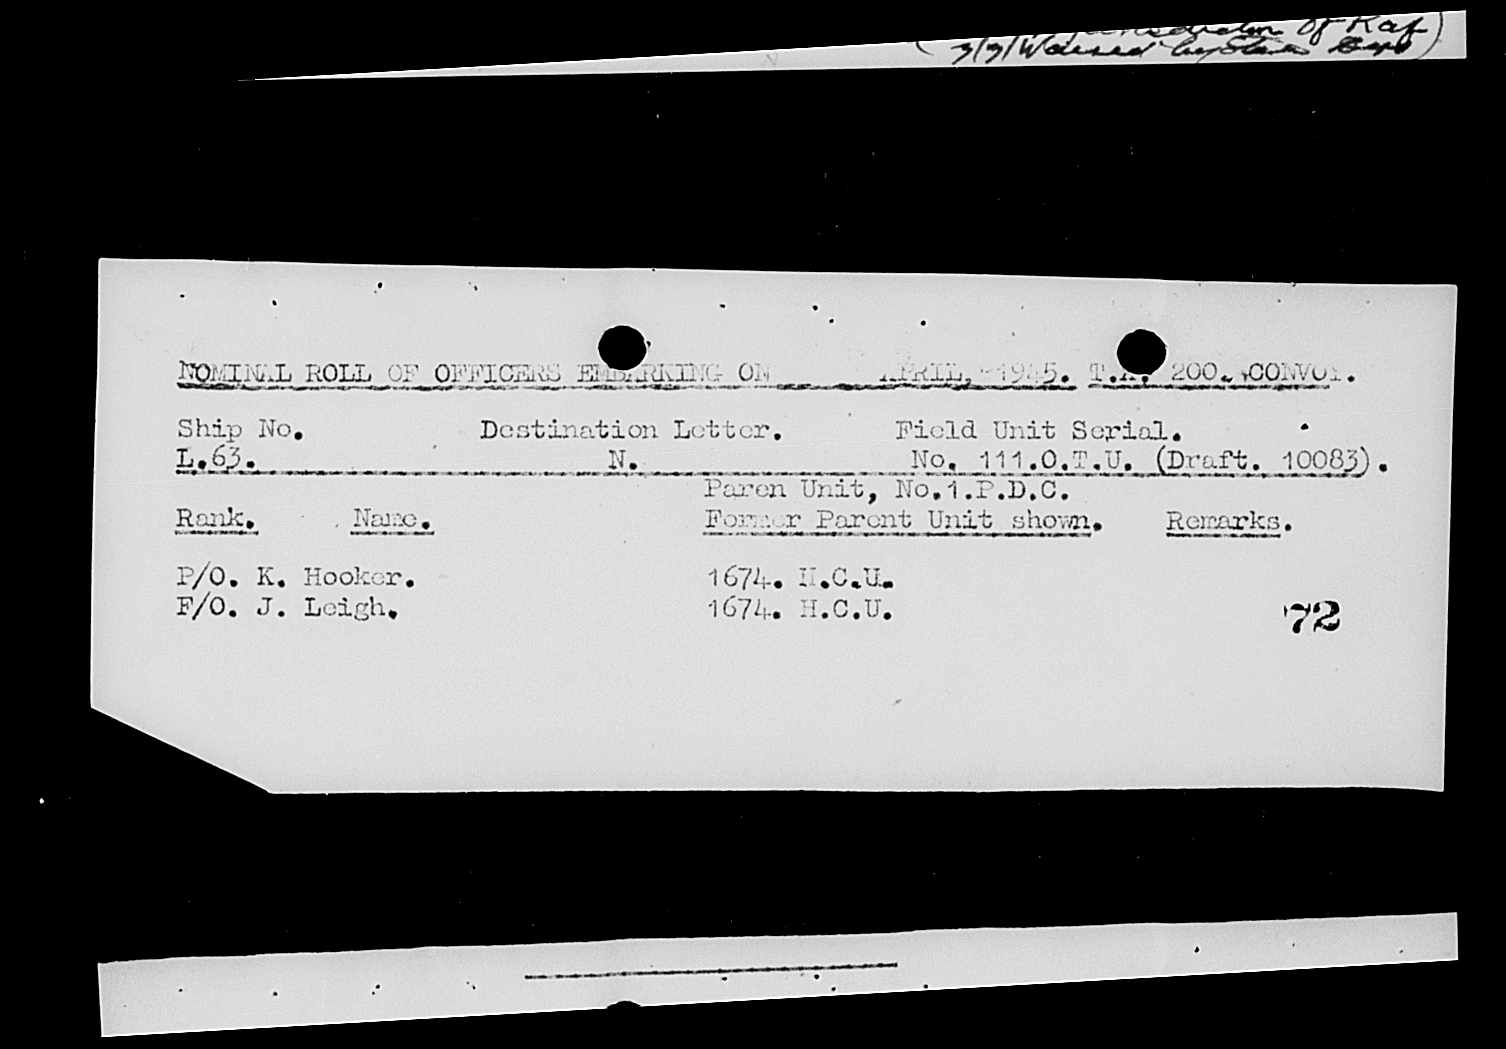 of Raf)
NOMINAL ROLL OF OFFICERS EMBARKING ON APRIL, 1945. T.A. 200. CONVOY.
Ship No. Destination Letter. Field Unit Serial.
L.63. N. No. 111.O.T.U. (Draft. 10083).
Paren Unit, No.1.P.D.C.
Rank. Name. Former Parent Unit shown. Remarks.
P/O. K. Hooker. 1674. H.C.U.
F/O. J. Leigh. 1674. H.C.U.
72